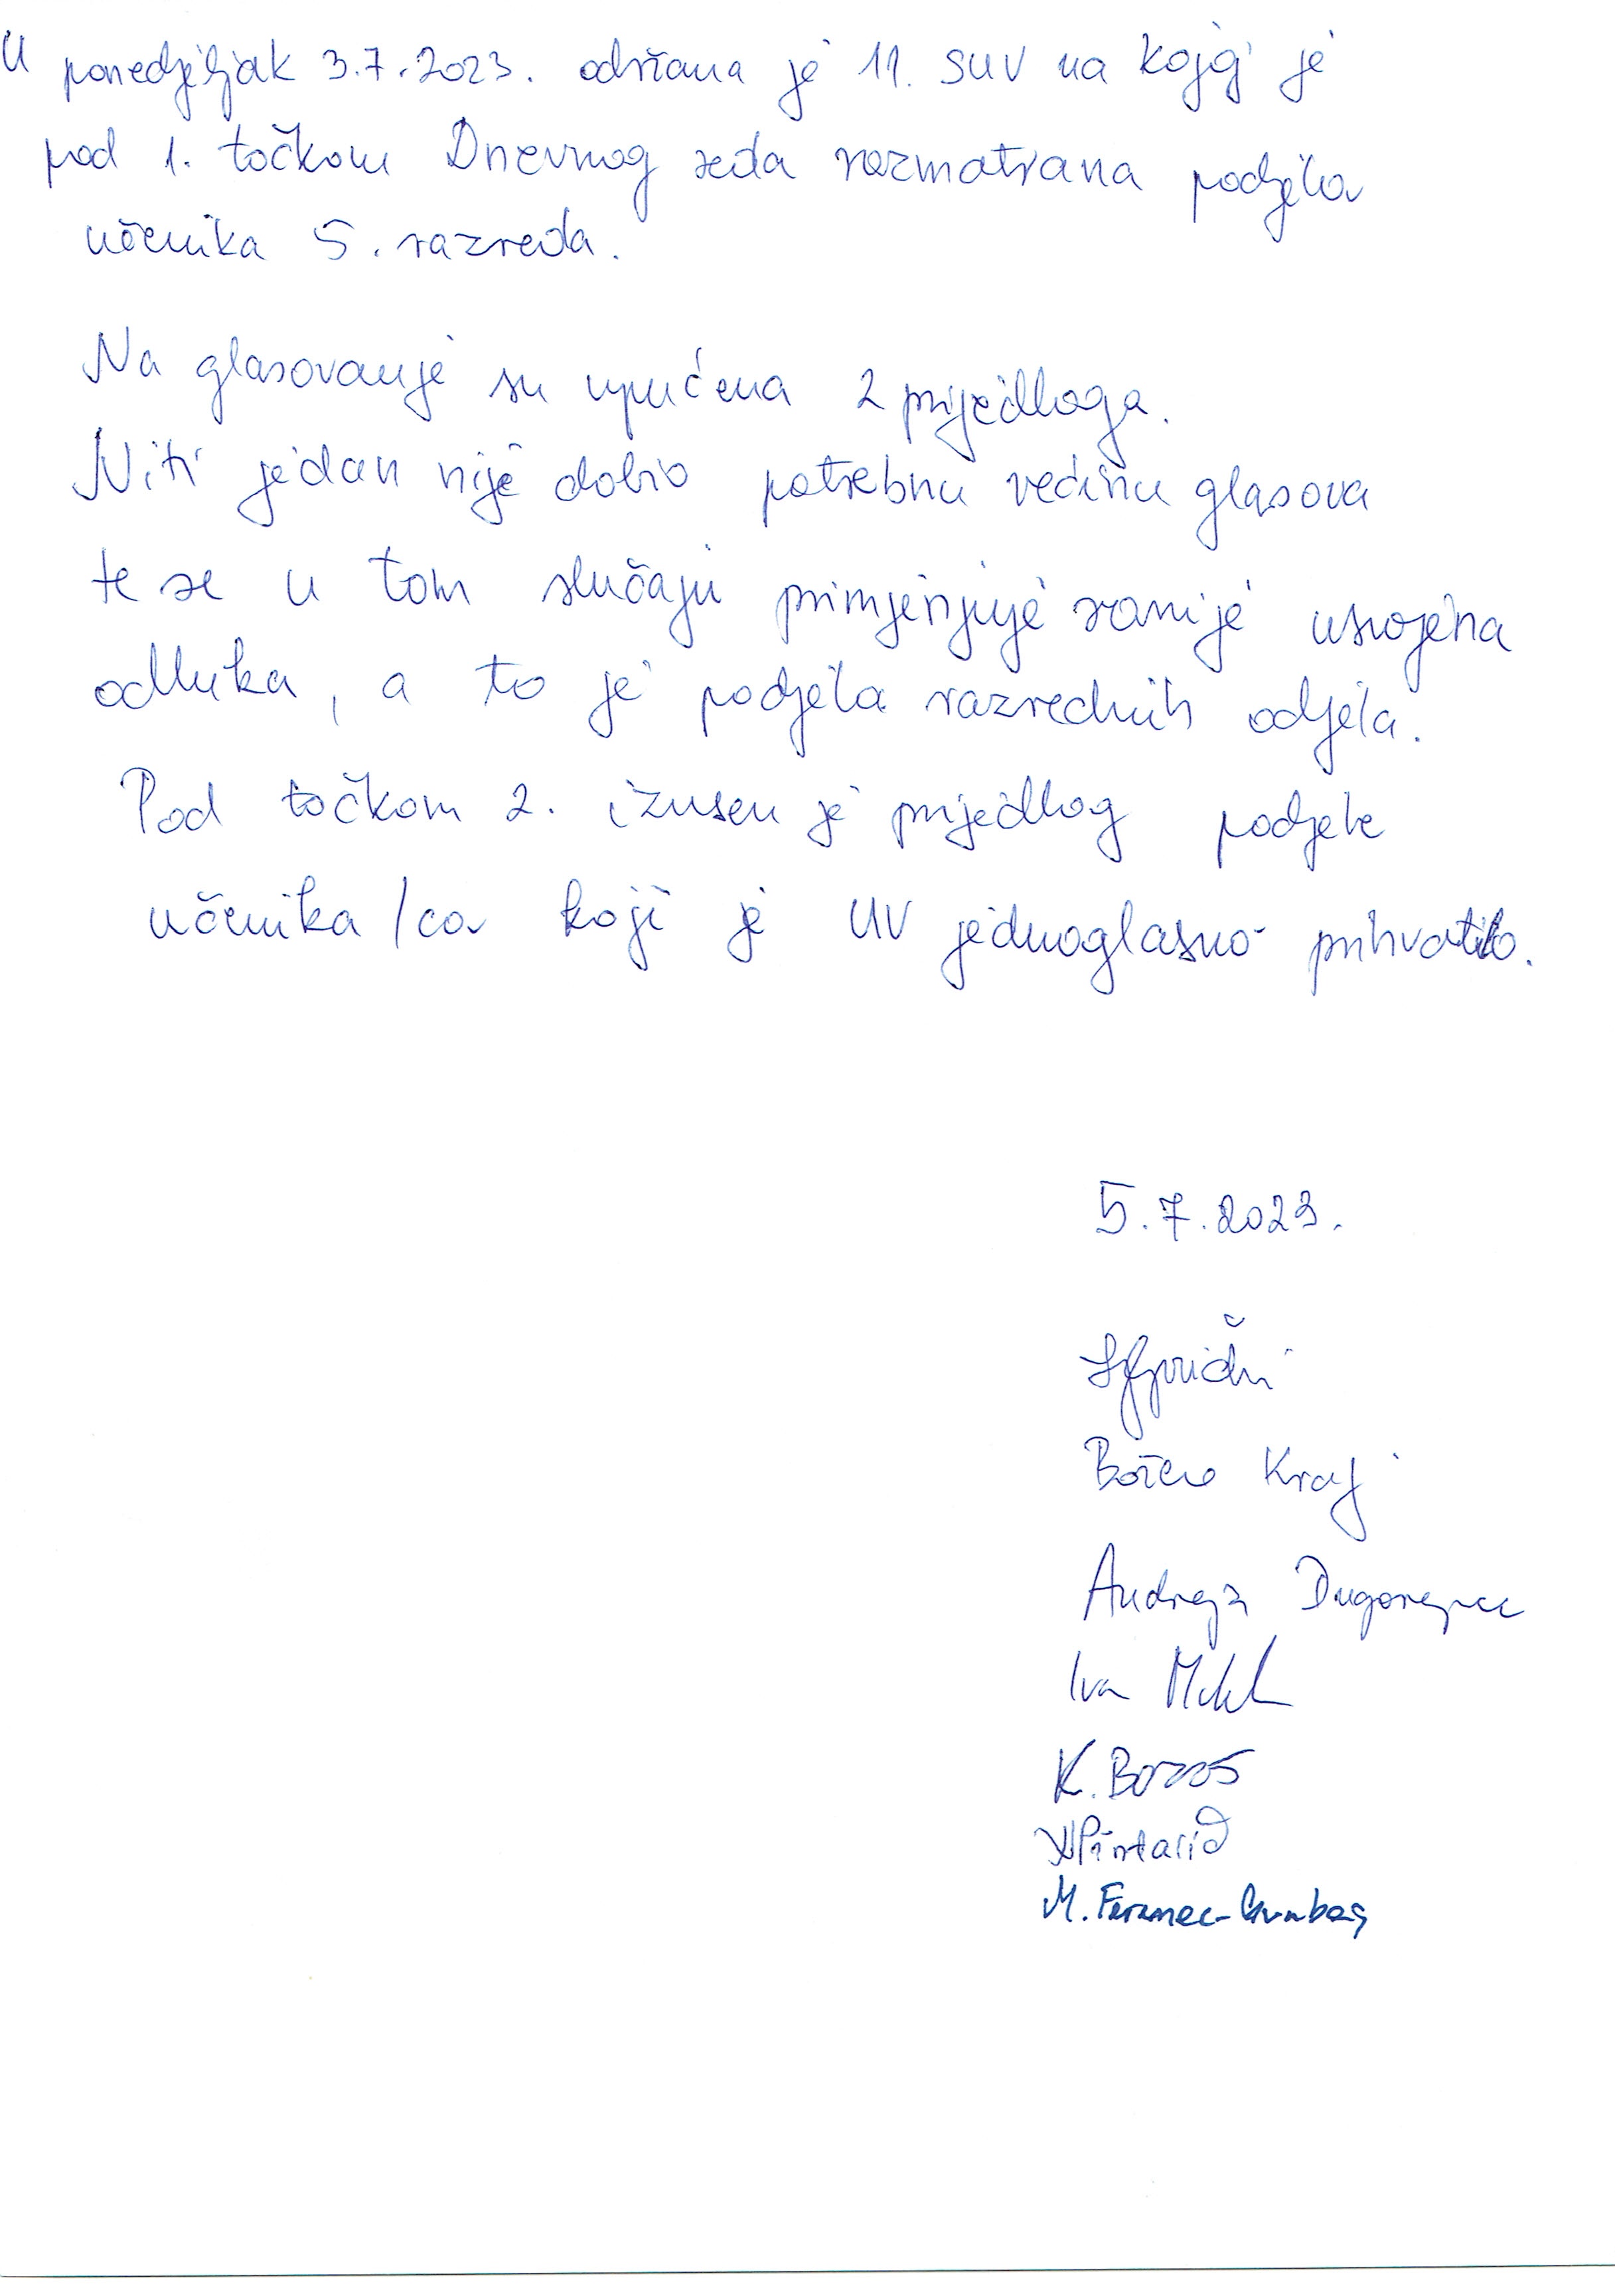 U ponedjeljak 3.7.2023. održana je 11. SUV na kojoj je
pod 1. točkom Dnevnog reda razmatrana podjela
učenika 5. razreda.
Na glasovanje su upućena 2 prijedloga.
Niti jedan nije dobio potrebnu većinu glasova
te se u tom slučaju primjenjuje ranije usvojena
odluka, a to je podjela razrednih odjela.
Pod točkom 2. iznesen je prijedlog podjele
učenika /ca koji je UV jednoglasno prihvatilo.
5.7.2023.
Kralj
Andreja Dugorepec
Iva
K.
M.